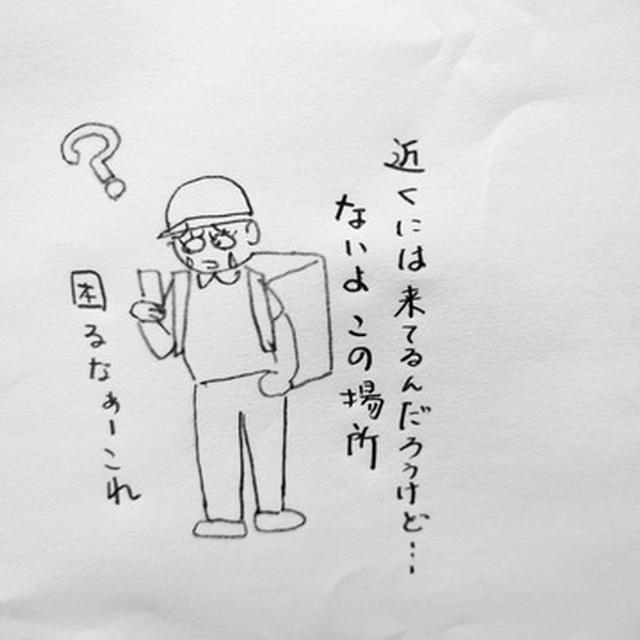 近くには来てるんだろうけど…
ないよこの場所
困るなぁーこれ
?